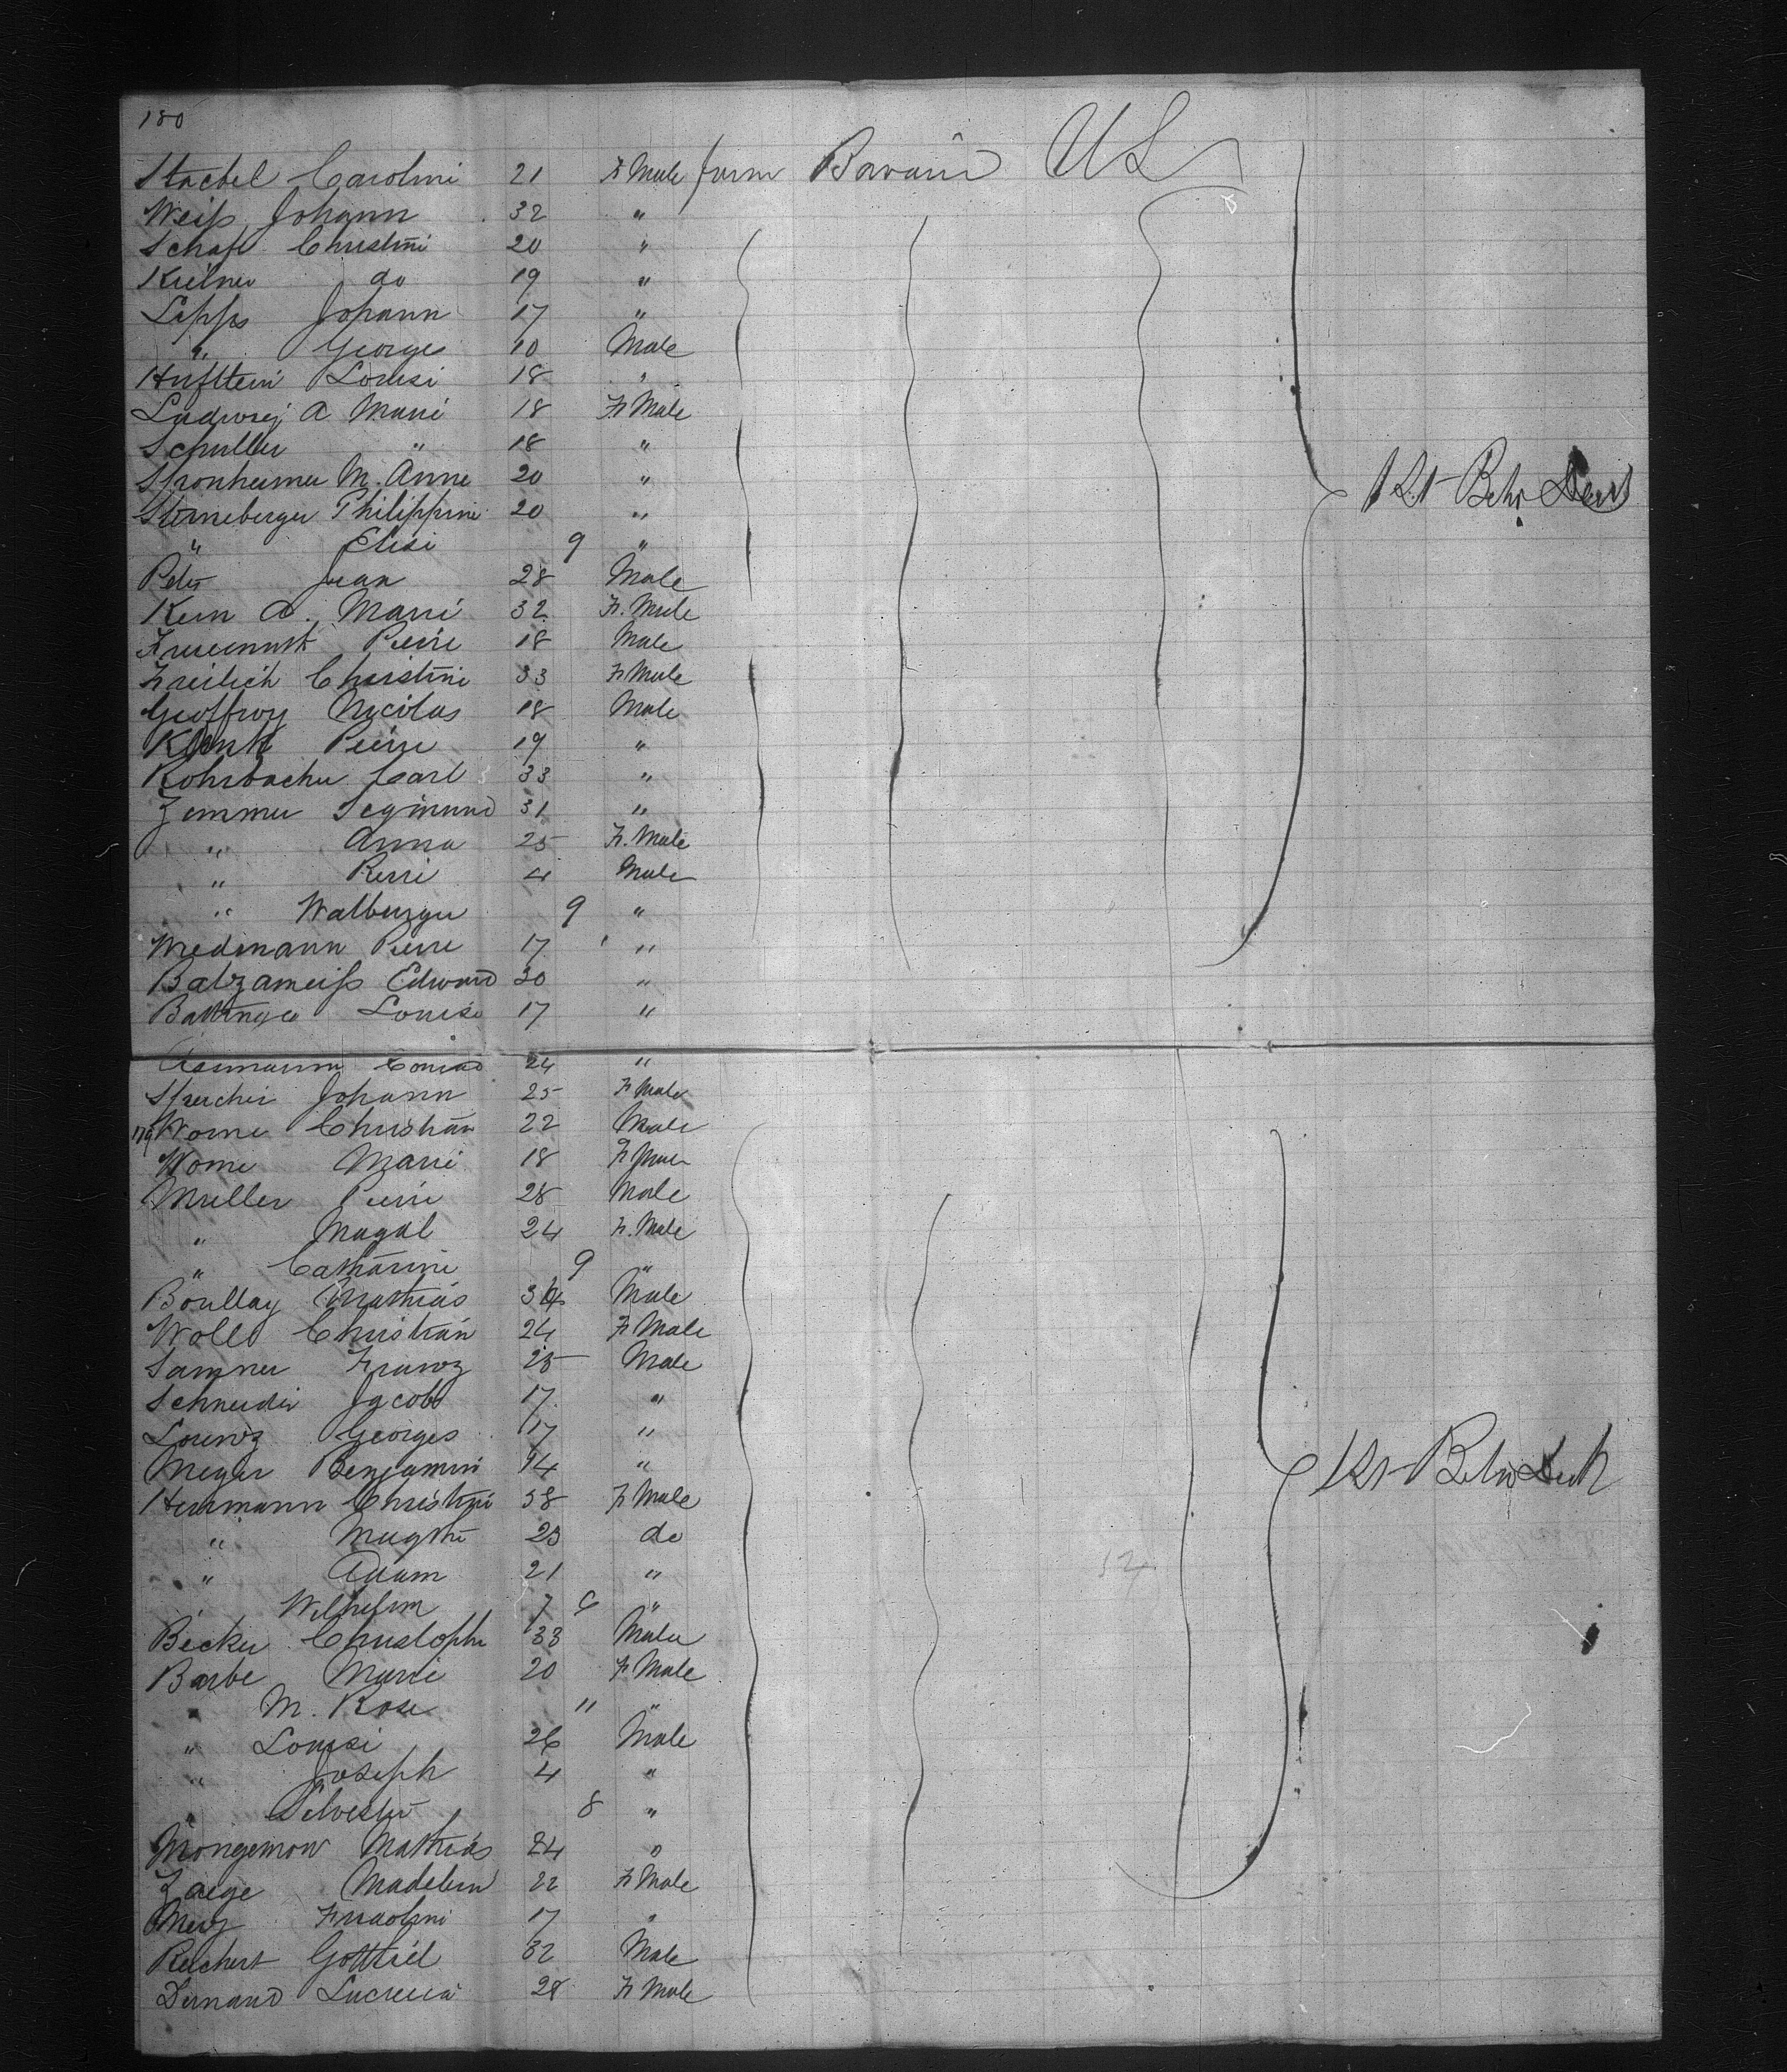 180
Stacbel Carolini 21 F Male farm Bavaria US
Weiss Johann 32 "
Schaf Christini 20 "
Kielner do 19 "
Lipps Johann 17 "
" Georges 10 Male
Hufltein Louisi 18 "
Ludwig A Marii 18 F Male
Schuller " 18 "
Spronheimer M. Anne 20 "
Sterneberger Philippini 20 "
" Elisi 9 "
Peter Jean 28 Male
Kern A. Marii 32 F. Male
Pierre 18 Male
Freilich Christini 33 F Male
Geoffroy Nicolas 18 Male
Klenk Pierre 19 "
Rohrbacher Carl 33 "
Zemmer Segmund 31 "
" Anna 25 F. Male
" Pierri 4 Male
" Walburger 9 "
Wiedemann Pierre 17 "
Balzameiss Edward 30 "
Battinger Louisi 17 "
Assmann Conrad 24 "
Johann 25 F Male
179 Worne Christian 22 Male
Worne Marii 18 F Male
Muller Pierri 28 Male
" Magdl 24 F. Male
" Catharini 9 "
Boullay Mathias 34 Male
Woll Christian 24 F Male
Samner Franz 25 Male
Schneider Jacob 17 "
Lorenz Georges 17 "
Meyer Benjamin 14 "
Herrmann Christini 58 F Male
" 23 do
" Adam 21 "
" Wilhelm 7 6 "
Becker Christophe 33 Male
Barbe Marie 20 F Male
" M. Rose 11 "
" Louisi 26 Male
" Joseph 4 "
" Silvester 8 "
Mongemow Mathias 24 "
Zaege Madelein 22 F Male
Merz Fridolini 17 "
Reichert Gottliel 32 Male
Dernand Lucrecia 28 F Male